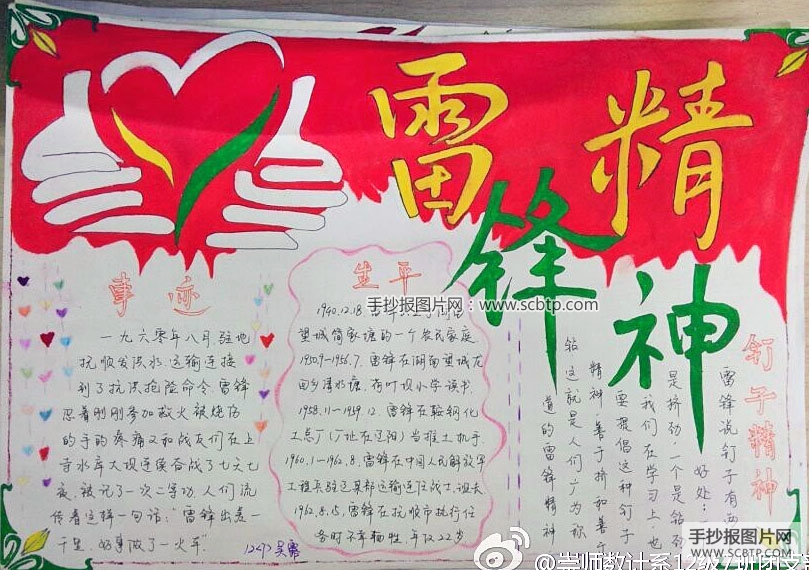 雷锋精神
手抄报图片网：www.scbtp.com
事迹
一九六零年八月驻地
抚顺发洪水运输连接
到了抗洪抢险命令雷锋
忍着刚刚参加救火被烧伤
的手的疼痛又和战友们在上
寺水库大坝连续奋战了七天七
夜,被记了一次二等功,人们流
传着这样一句话:"雷锋出差一
千里,好事做了一火车"
生平
1940.12.18
望城简家塘的一个农民家庭
1950.9-1956.7,雷锋在湖南望城龙
回乡清水塘、荷叶坝小学读书.
1958.11-1959.12.雷锋在鞍钢化
工总厂(厂址在辽阳)当推土机手.
1960.1-1962.8.雷锋在中国人民解放军
工程兵驻辽某部运输连任战士、班长
1962.8.15,雷锋在抚顺市执行任
务时不幸牺牲,年仅22岁
钉子精神
雷锋说钉子有两
好处:
是挤劲,一个是钻劲
我们在学习上,也
要提倡这种钉子
精神善于挤和善于
钻这就是人们广为称
道的雷锋精神
手抄报图片网
www.scbtp.com
@崇师数计系12级7班团支